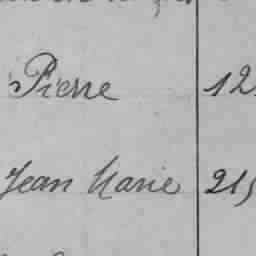 Pierre 12
Jean Marie 215